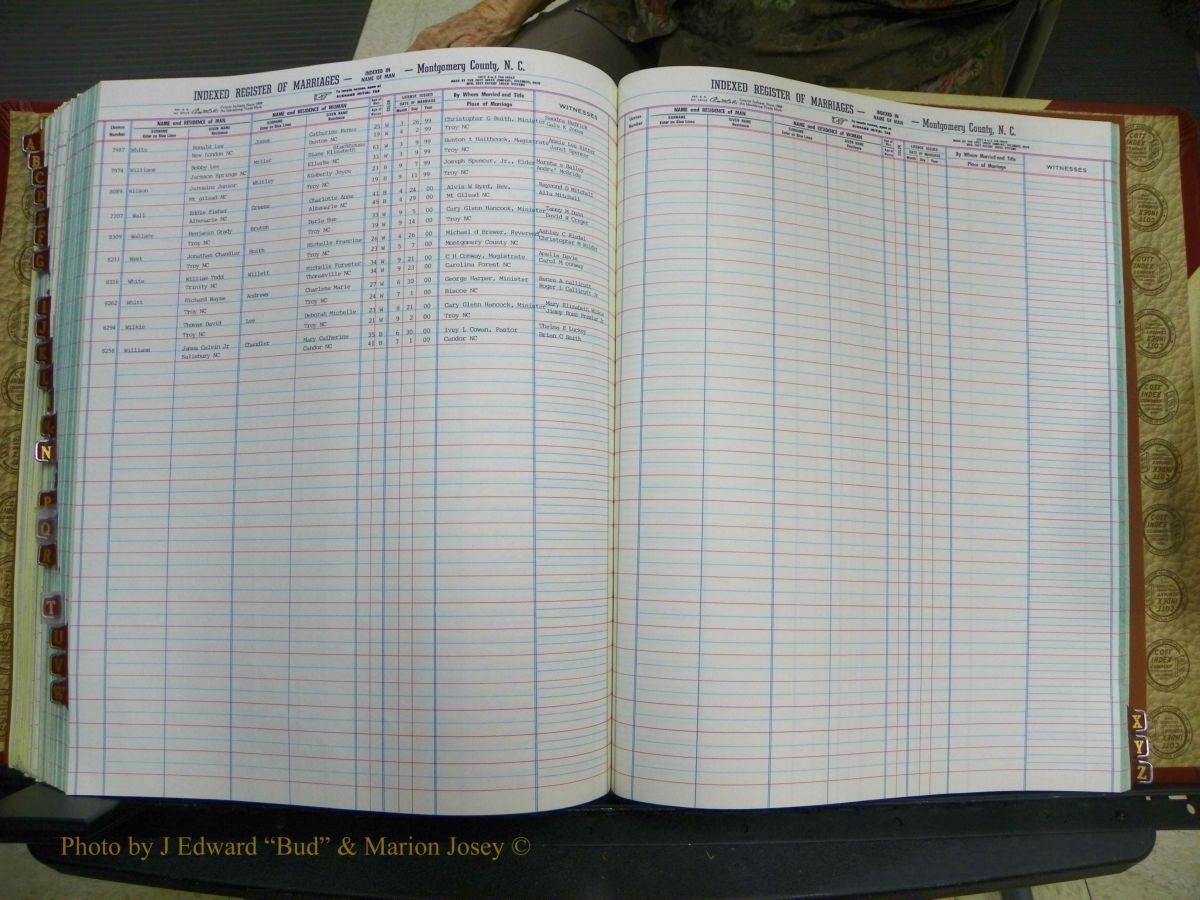 INDEXED REGISTER OF MARRIAGES — INDEXED IN NAME OF MAN — Montgomery County, N. C.
License Number NAME and RESIDENCE OF MAN NAME and RESIDENCE OF WOMAN LICENSE ISSUED DATE OF MARRIAGE By Whom Married and Title WITNESSES
SURNAME GIVEN NAME SURNAME GIVEN NAME COLOR Month Day Year Place of Marriage
7987 White Ronald Lee Jones Catherine Renee 25 W 3 26 99 Christopher G Smith, Minister Sandra Hudrick
New London NC Denton NC 19 W 4 2 99 Troy NC Gale K Jones
7974 Williams Bobby Lee Miller Diane Elizabeth Stackhouse 61 W 3 9 99 Benton t Haithcock, Magistrate Annie Lee Ritter
Jackson Springs NC Ellerbe NC 33 W 3 9 99 Troy NC Janet Spencer
8089 Wilson Jermaine Junior Whitley Kimberly Joyce 23 B 9 7 99 Joseph Spencer, Jr., Elder Marsha s Bailey
Mt gilead NC Troy NC 19 B 9 11 99 Troy NC Andra' McBride
2207 Wall Eddie Fisher Greene Charlotte Anne 41 B 4 24 00 Alvis W Byrd, Rev. Raymond D Mitchell
Albemarle NC Albemarle NC 45 B 4 29 00 Mt Gilead NC Alla Mitchell
8309 Wallace Benjamin Grady Bruton Doris Sue 33 W 9 5 00 Cary Glenn Hancock, Minister Tammy M Dunn
Troy NC Troy NC 39 W 9 14 00 Troy NC David R Creger
8211 West Jonathan Chandler Smith Michelle Francine 26 W 4 26 00 Michael d Brewer, Reverend Ashley C
Troy NC Troy NC 23 W 5 7 00 Montgomery County NC Christopher M Wilder
8316 White William Todd Willett Michelle Forrester 34 W 9 21 00 C H Conway, Magistrate Amelia Davis
Trinity NC Thomasville NC 34 W 9 23 00 Carolina Forest NC Carol M conway
8262 Whitt Richard Wayne Andrews Charlene Marie 27 W 6 30 00 George Harper, Minister Renee A callicutt
Troy NC Troy NC 24 W 7 1 00 Biscoe NC Roger L Callicutt Jr
8294 Wilkie Thomas David Lee Deborah Michelle 23 W 8 21 00 Cary Glenn Hancock, Minister Mary Elizabeth Wilkie
Troy NC Troy NC 21 W 9 2 00 Troy NC
8258 Williams James Calvin Jr Chandler Mary Catherine 35 B 6 30 00 Ivey L Cowan, Pastor Thelma E Luckey
Salisbury NC Candor NC 41 B 7 1 00 Candor NC Brian C Smith
INDEXED REGISTER OF MARRIAGES — INDEXED IN NAME OF MAN — Montgomery County, N. C.
License Number NAME and RESIDENCE OF MAN NAME and RESIDENCE OF WOMAN LICENSE ISSUED DATE OF MARRIAGE By Whom Married and Title WITNESSES
SURNAME GIVEN NAME SURNAME GIVEN NAME COLOR Month Day Year Place of Marriage
A
B
C
D
E
F
G
I
J
K
L
N
P
Q
R
T
U
V
W
X
Y
Z
COTT INDEX COMPANY
Photo by J Edward “Bud” & Marion Josey ©